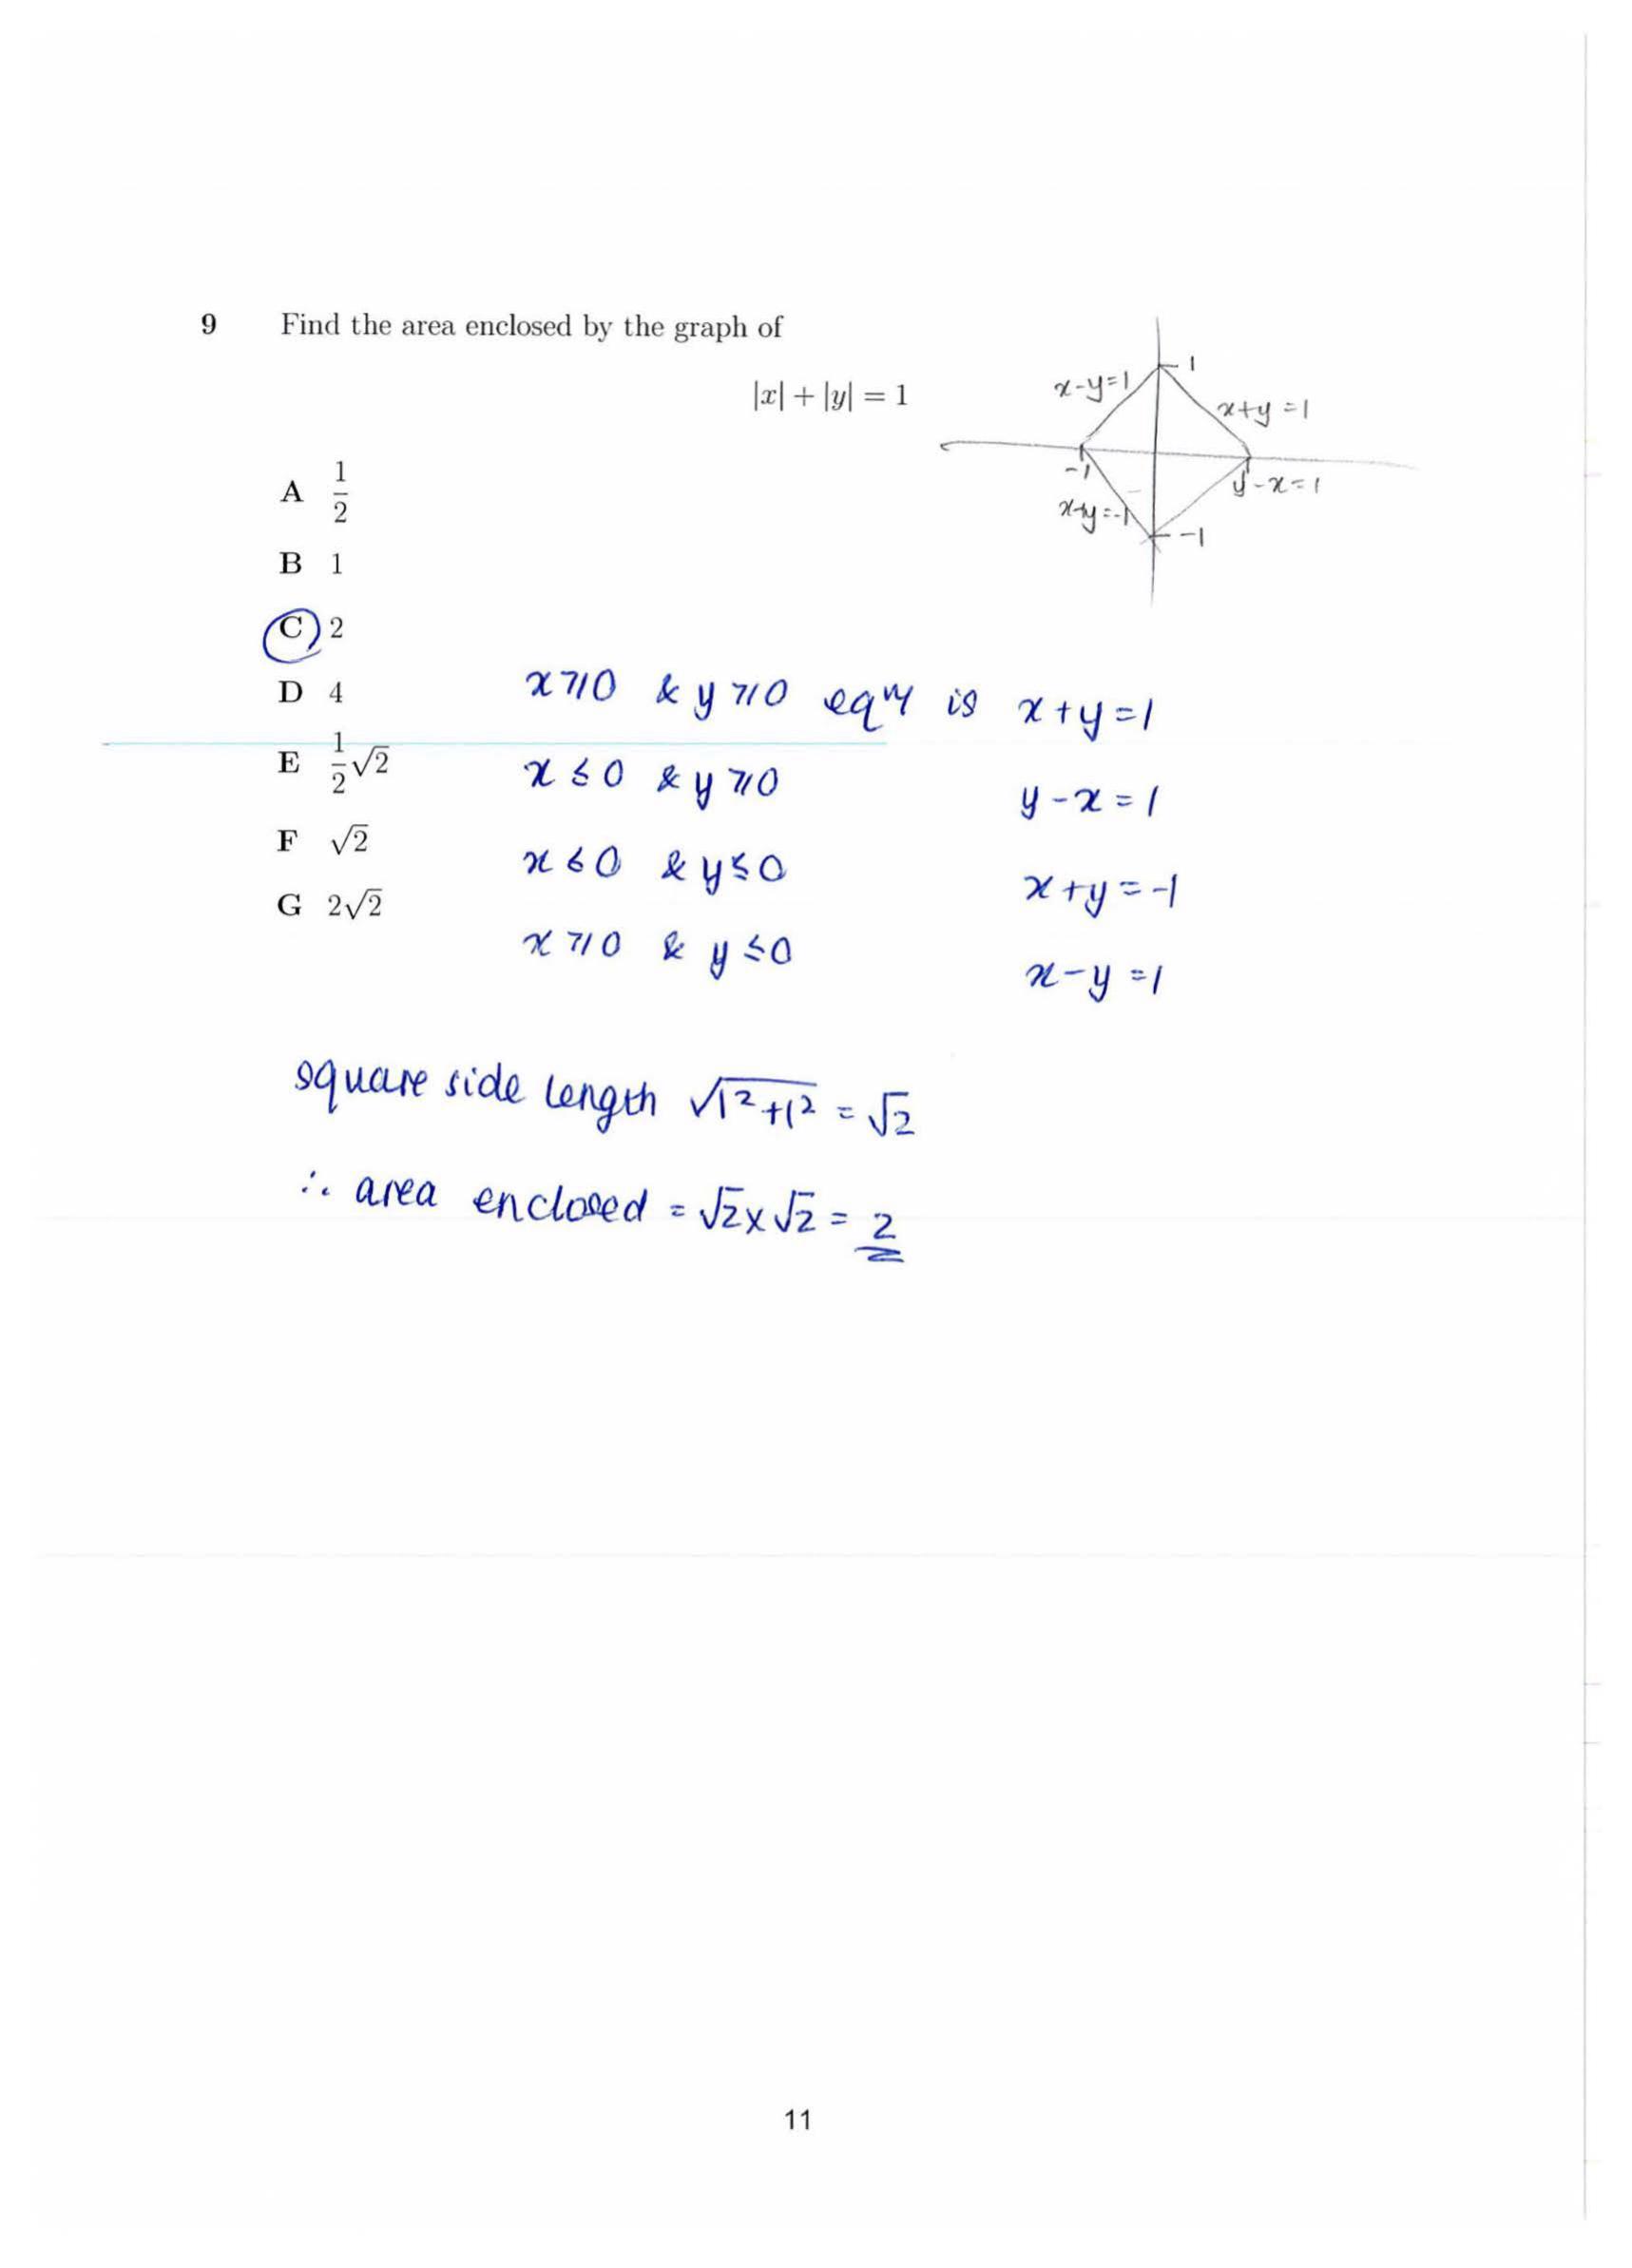 9 Find the area enclosed by the graph of
|x| + |y| = 1
x-y=1
1
x+y=1
-1
y-x=1
x+y=-1
-1
A 1/2
B 1
C 2
D 4
E 1/2 √2
F √2
G 2√2
x ⩾ 0 & y ⩾ 0 eqⁿ is x + y = 1
x ≤ 0 & y ⩾ 0 y - x = 1
x ≤ 0 & y ≤ 0 x + y = -1
x ⩾ 0 & y ≤ 0 x - y = 1
square side length √1²+1² = √2
∴ area enclosed = √2 x √2 = 2
11